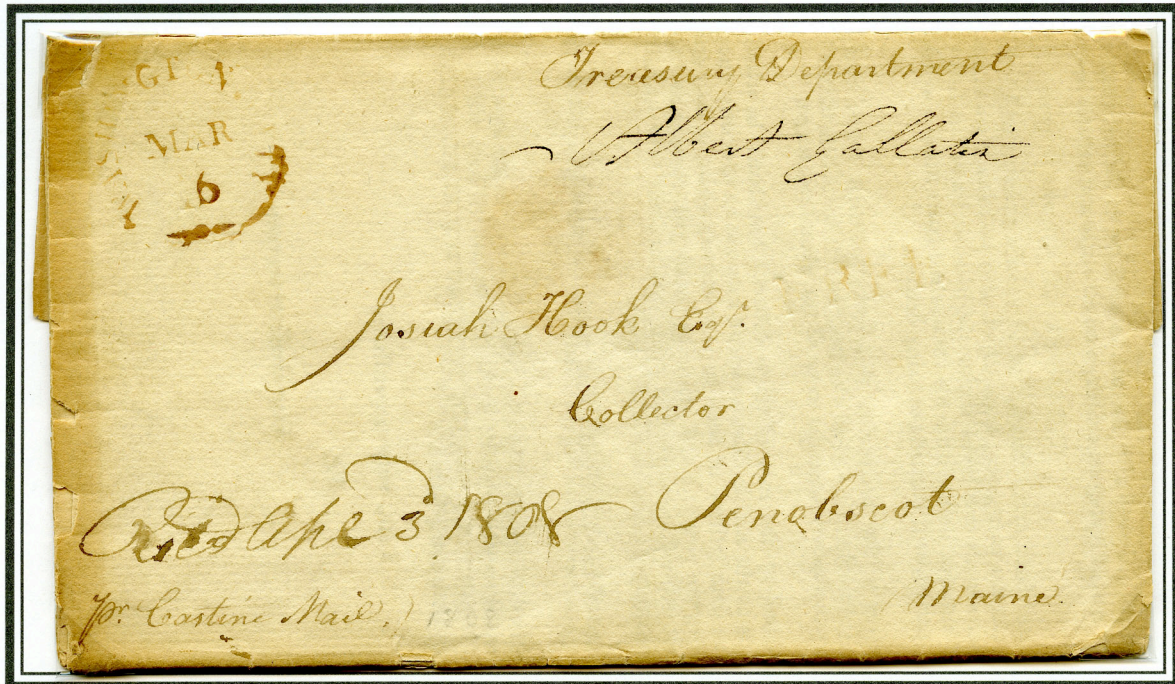 WASHINGTON
MAR
6
Treasury Department
Albert Gallatin
Josiah Hook Esqr.
Collector
Penobscot
Maine.
Recd Apl 3 1808
pr. Castine Mail.
1808